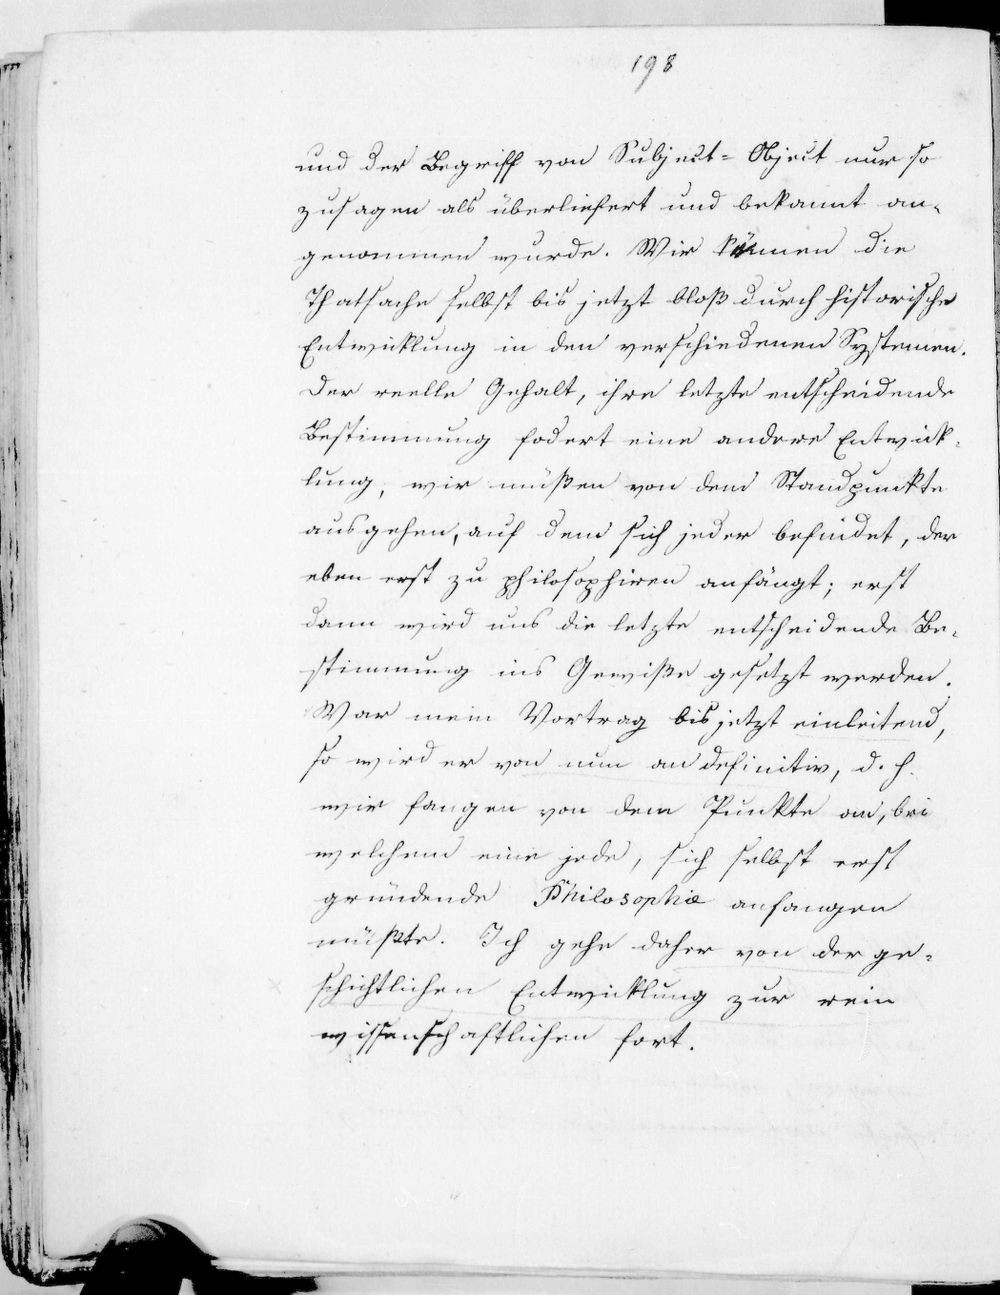 198
und der Begriff von Subject= Object nur so
zusagen als überliefert und bekannt an=
genommen wurde. Wir kennen die
Thatsache selbst bis jetzt bloß durch historische
Entwicklung in den verschiedenen Systemen.
Der reelle Gehalt, ihre letzte entscheidende
Bestimmung fodert eine andere Entwick=
lung, wir müßen von dem Standpunkte
ausgehen, auf dem sich jeder befindet, der
eben erst zu philosophiren anfängt; erst
dann wird uns die letzte entscheidende Be=
stimmung ins Gewiße gesetzt werden.
War mein Vortrag bis jetzt einleitend,
so wird er von nun an definitiv, d. h.
wir fangen von dem Punkte an, bei
welchem eine jede, sich selbst erst
gründende Philosophie anfangen
müßte. Ich gehe daher von der ge=
schichtlichen Entwicklung zur rein
wissenschaftlichen fort.